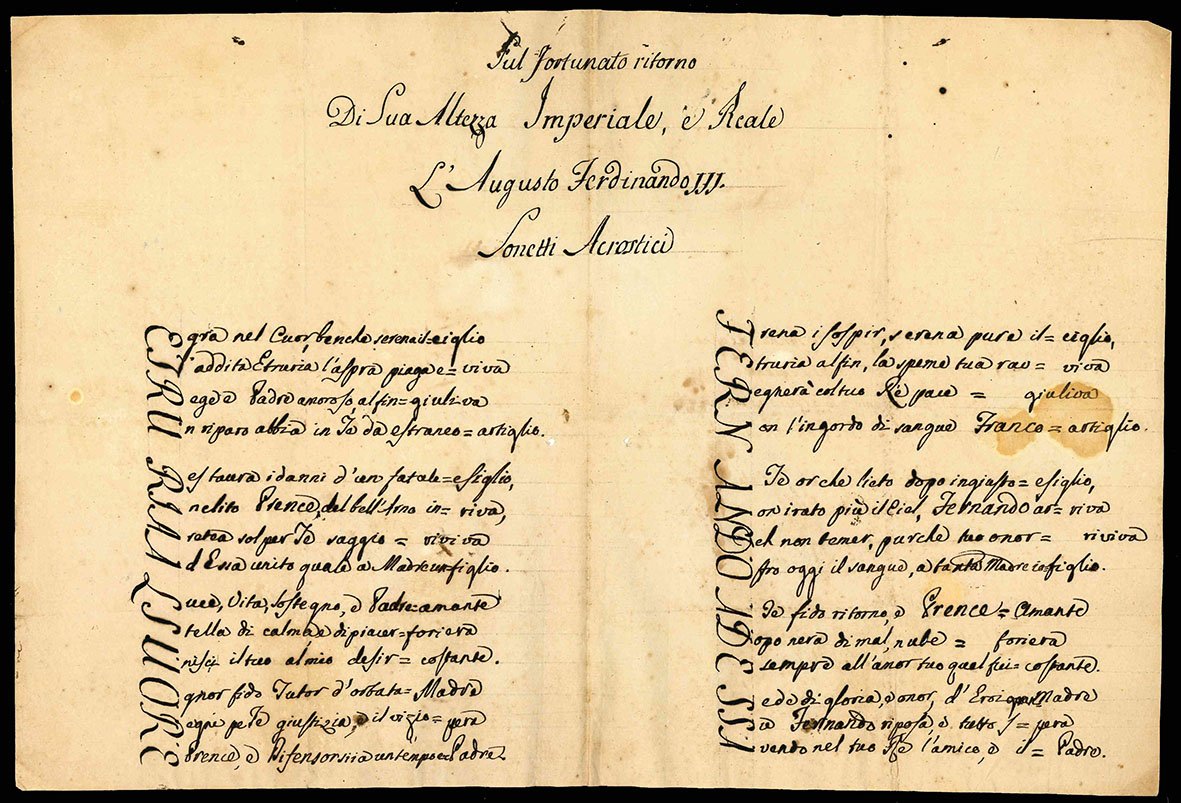 Sul fortunato ritorno
Di Sua Altezza Imperiale, e Reale
L'Augusto Ferdinando III.
Sonetti Acrostici
Egra nel Cuor, benche serena il = ciglio
T'addita Etruria l'aspra piaga e = viva
Rege e Padre amoroso alfin = giuliva
Un riparo abbia in Te da estraneo = artiglio.
Restaura i danni d'un fatale = esiglio,
Inclito Prence, del bell'Arno in = riva,
Aretea sol per Te saggio = viviva
Ad Essa unito quale a Madre un figlio.
Luce, Vita, sostegno, e Padre = amante
Stella di calma e di piacer = foriera
Unisci il tuo al mio desir = costante.
Ognor fido Tutor d'orbata = Madre
Regni pe Te giustizia, e il vizio = pera
E Prence, e Difensor sii a un tempo e = Padre.
Frena i sospir, serena pura il = ciglio,
Etruria alfin, la speme tua rav = viva
Regnerà col tuo Rè pace = giuliva
Non l'ingordo di sangue Franco = artiglio.
A Te or che lieto dopo ingiusto = esiglio,
Non irato più il Ciel, Fernando ar = riva
Deh non temer, purche tuo onor = riviva
Offro oggi il sangue, a tanta Madre io figlio.
A Te fido ritorno, e Prence = Amante
Dopo nera di mal, nube = foriera
E sempre all'amor tuo qual fui = costante.
Sede di gloria, e onor, d'Eroi Madre
Sia Fernando riposa, e tutto s = pera
Avendo nel tuo Rè l'amico, e il = Padre.